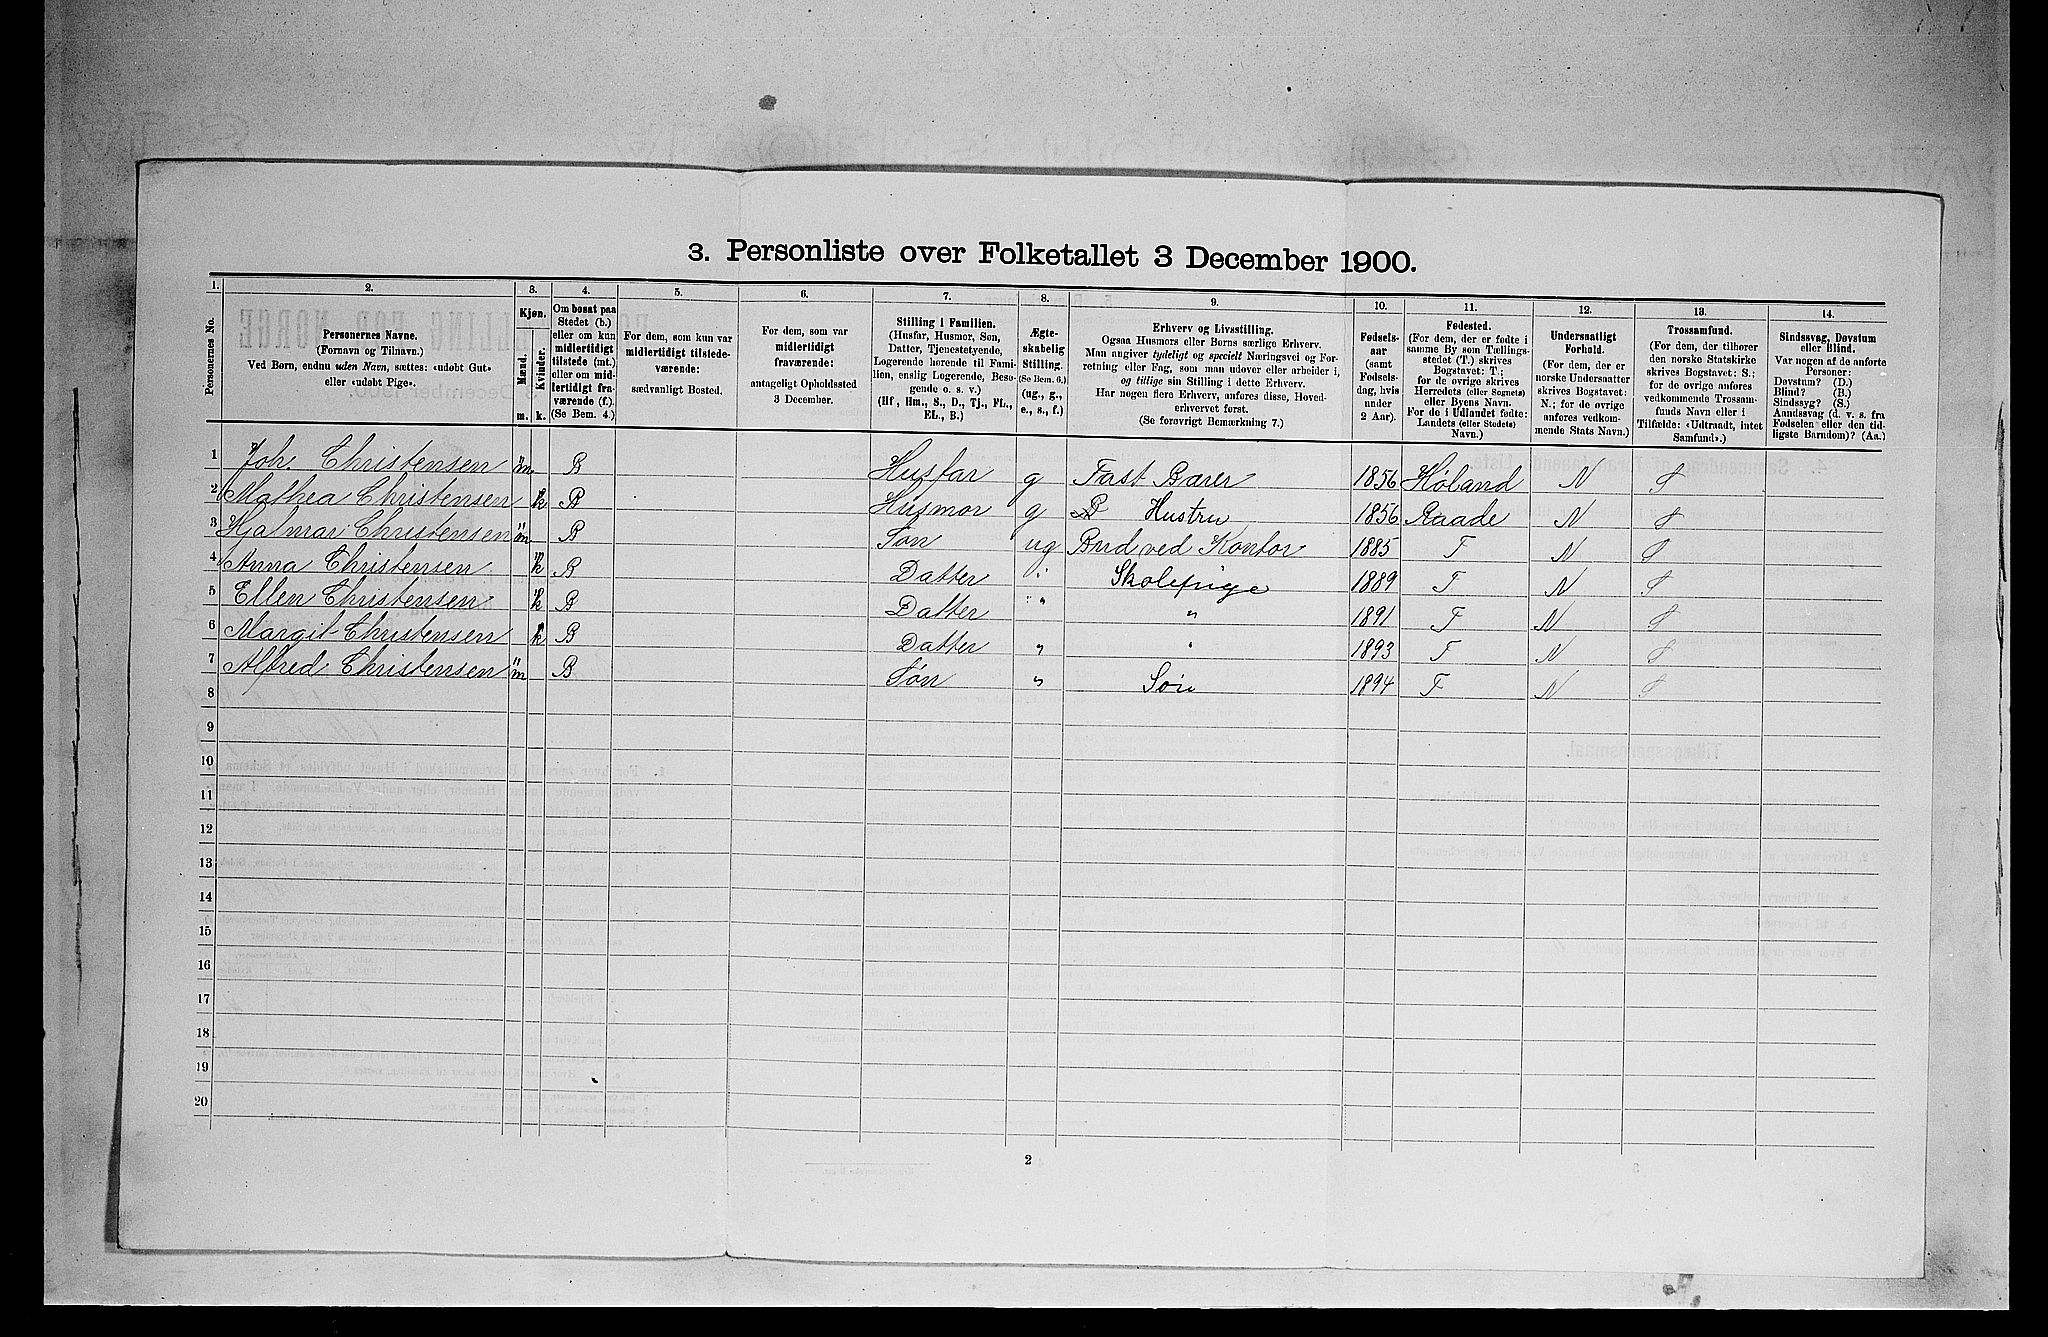 3. Personliste over Folketallet 3 December 1900.
1. 2. 3. 4. 5. 6. 7. 8. 9. 10. 11. 12. 13. 14.
Personernes No.
Personernes Navne.
(Fornavn og Tilnavn.)
Ved Børn, endnu uden Navn, sættes: «udøbt Gut»
eller «udøbt Pige».
Kjøn.
Mænd.
Kvinder.
m. k.
Om bosat paa
Stedet (b.)
eller om kun
midlertidigt
tilstede (mt.)
eller om mid-
lertidigt fra-
værende (f.).
(Se Bem. 4.)
For dem, som kun var
midlertidigt tilstede-
værende:
sædvanligt Bosted.
For dem, som var
midlertidigt
fraværende:
antageligt Opholdssted
3 December.
Stilling i Familien.
(Husfar, Husmor, Søn,
Datter, Tjenestetyende,
Logerende hørende til Fami-
lien, enslig Logerende, Besø-
gende o. s. v.)
(Hf, Hm., S., D., Tj., FL.,
EL., B.)
Ægte-
skabelig
Stilling.
(Se Bem. 6.)
(ug., g.,
e., s., f.)
Erhverv og Livsstilling.
Ogsaa Husmors eller Børns særlige Erhverv.
Man angiver tydeligt og specielt Næringsvei og For-
retning eller Fag, som man udøver eller arbeider i,
og tillige sin Stilling i dette Erhverv.
Har nogen flere Erhverv, anføres disse, Hoved-
erhvervet først.
(Se forøvrigt Bemærkning 7.)
Fødsels-
aar
(samt
Fødsels-
dag, hvis
under
2 Aar).
Fødested.
(For dem, der er fødte i
samme By som Tællings-
stedet (T.) skrives
Bogstavet: T.;
for de øvrige skrives
Herredets (eller Sognets)
eller Byens Navn.
For de i Udlandet fødte:
Landets (eller Stedets)
Navn.)
Undersaatligt
Forhold.
(For dem, der er
norske Undersaatter
skrives Bogstavet:
N.; for de øvrige
anføres vedkom-
mende Stats Navn.)
Trossamfund.
(For dem, der tilhører
den norske Statskirke
skrives Bogstavet: S.;
for de øvrige anføres
vedkommende Trossam-
funds Navn eller i
Tilfælde: «Udtraadt, intet
Samfund».)
Sindssvag, Døvstum
eller Blind.
Var nogen af de anførte
Personer:
Døvstum? (D.)
Blind? (B.)
Sindssyg? (S.)
Aandssvag (d. v. s. fra
Fødselen eller den tid-
ligste Barndom)? (Aa.)
1 Joh. Christensen m B Husfar g Fast Bærer 1856 Høland N S
2 Mathea Christensen k B Husmor g Hustru 1856 Raade N S
3 Hjalmar Christensen m B Søn ug Bud ved Kontor 1885 T N S
4 Anna Christensen k B Datter " Skolepige 1889 T N S
5 Ellen Christensen k B Datter " " 1891 T N S
6 Margit Christensen k B Datter " " 1893 T N S
7 Alfred Christensen m B Søn " Søn 1894 T N S
8
9
10
11
12
13
14
15
16
17
18
19
20
2